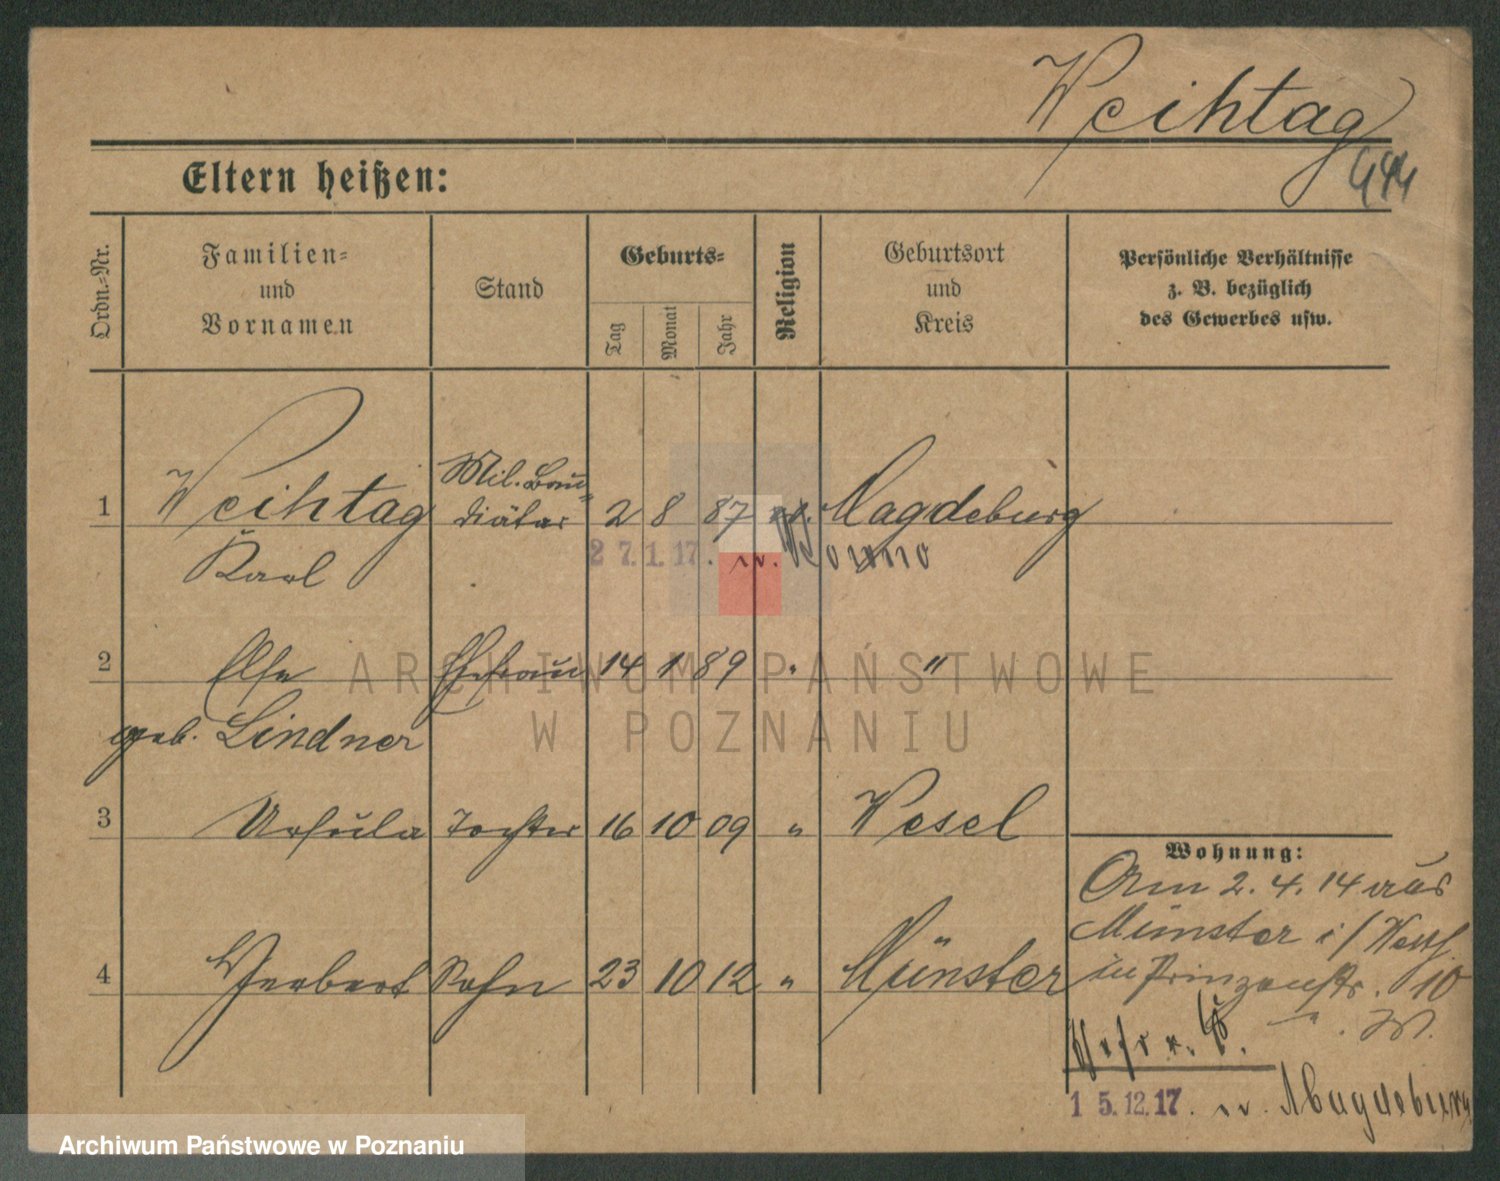 Weihtag
Eltern heißen:
Ordn.-Nr.
Familien-
und
Vornamen
Stand
Geburts-
Tag
Monat
Jahr
Religion
Geburtsort
und
Kreis
Persönliche Verhältnisse
z. B. bezüglich
des Gewerbes usw.
1 Weihtag Mil. Bau- 2 8 87 Magdeburg
Karl diätar
27.1.17. n.
2 Else Ehefrau 14 1 89 " "
geb. Lindner
3 Ursula Tochter 16 10 09 " Wesel
4 Herbert Sohn 23 10 12 " Münster
Wohnung:
Am 2. 4. 14 aus
Münster i/Westf.
in Prinzenstr. 10
15.12.17. n. Magdeburg
ARCHIWUM PAŃSTWOWE
W POZNANIU
Archiwum Państwowe w Poznaniu